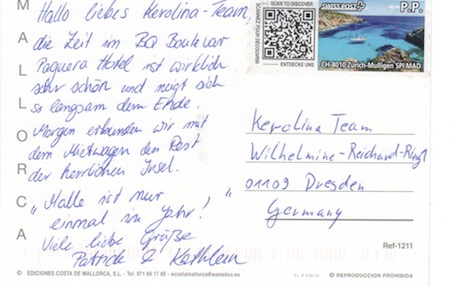 MALLORCA
Hallo liebes Kerolina-Team,
die Zeit im BQ Boulevar
Paguera Hotel ist wirklich
sehr schön und neigt sich
so langsam dem Ende.
Morgen erkunden wir mit
dem Mietwagen den Rest
der herrlichen Insel.
"Malle ist nur
einmal im Jahr!"
Viele liebe Grüße
Patrick & Kathleen
SCAN TO DISCOVER
SCANNEZ POUR DÉCOUVRIR
ENTDECKE UNS
SWISS POST
P.P.
CH-8010 Zürich-Mülligen SPI MAD
Kerolina Team
Wilhelmine-Reichard-Ring 1
01109 Dresden
Germany
Ref-1211
© EDICIONES COSTA DE MALLORCA, S.L. - Tel. 971 89 17 65 - ecostamallorca@wanadoo.es
© REPRODUCCION PROHIBIDA